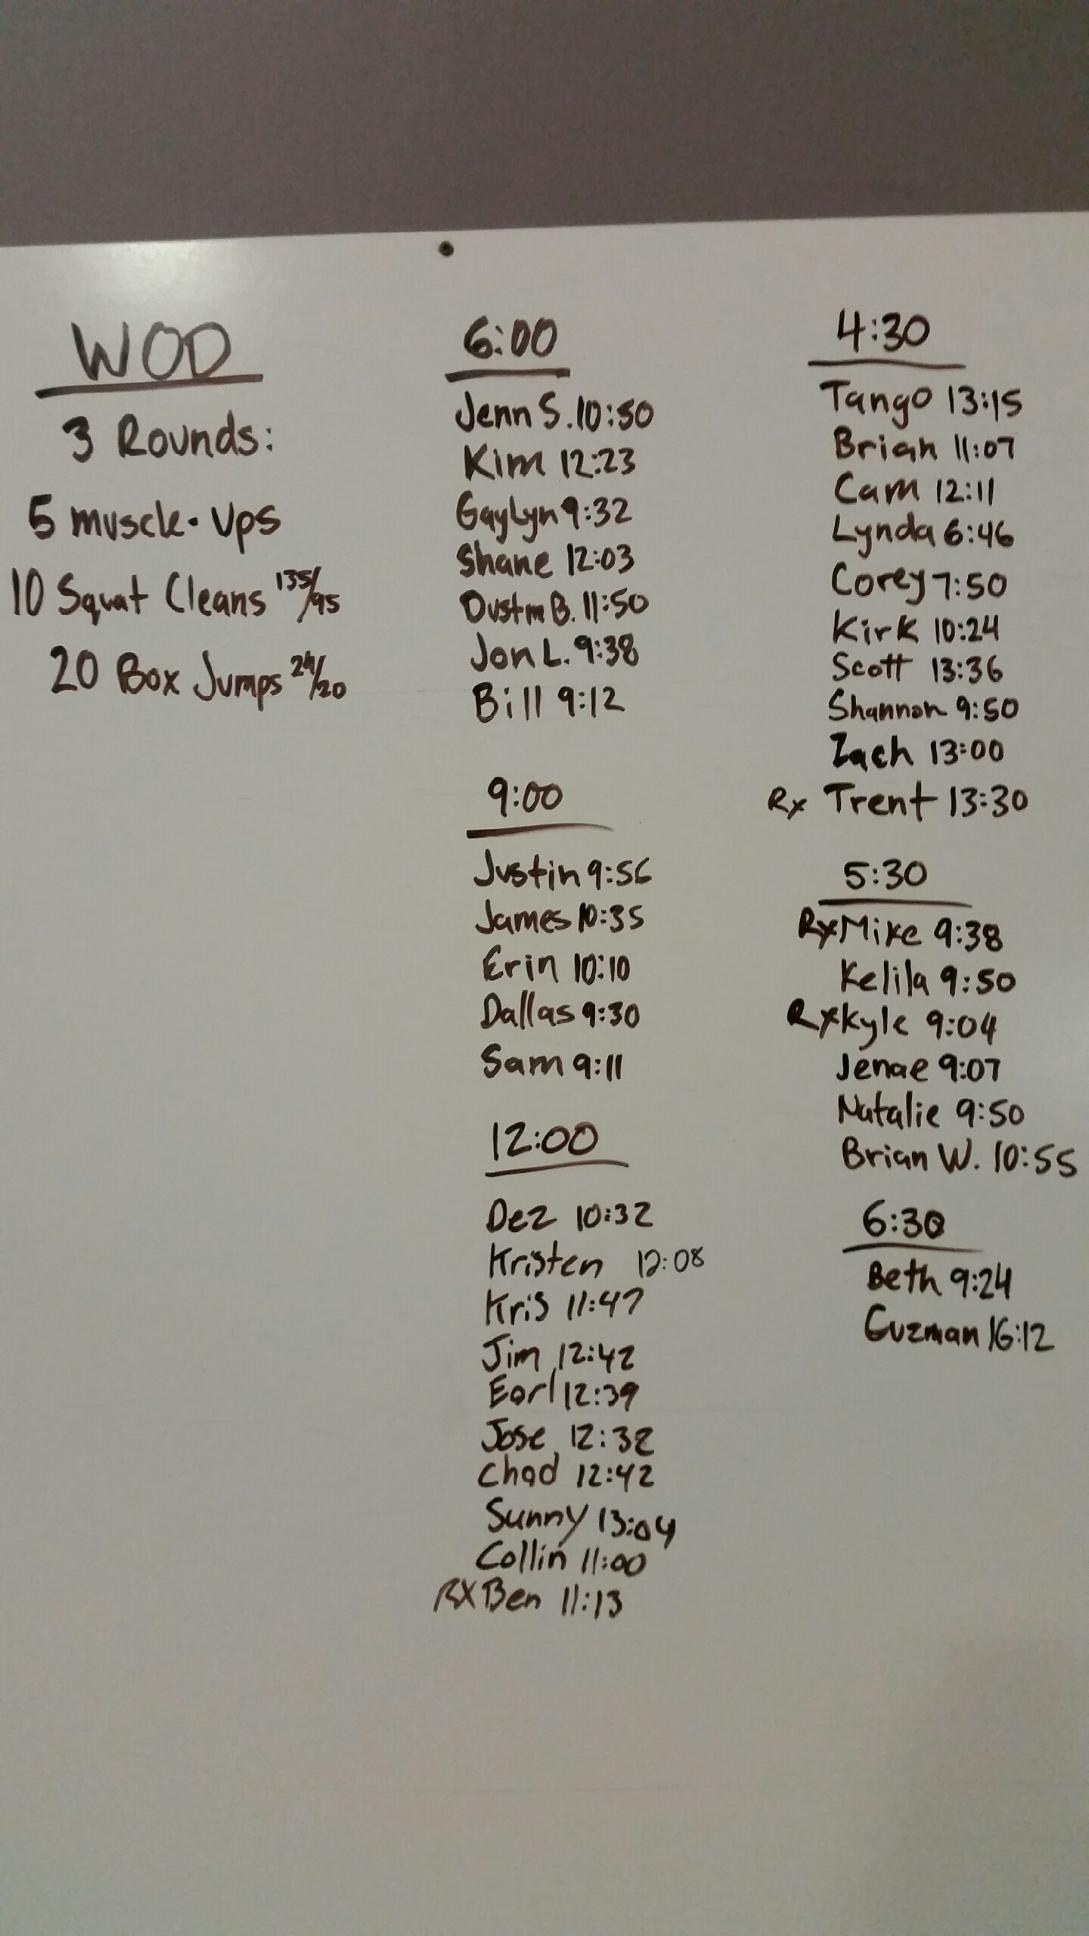 WOD
3 Rounds:
5 muscle-ups
10 Squat Cleans 135/95
20 Box Jumps 24/20
6:00
Jenn S. 10:50
Kim 12:23
Gaylyn 9:32
Shane 12:03
Dustin B. 11:50
Jon L. 9:38
Bill 9:12
9:00
Justin 9:56
James 10:35
Erin 10:10
Dallas 9:30
Sam 9:11
12:00
Dez 10:32
Kristen 12:08
Kris 11:47
Jim 12:42
Earl 12:39
Jose 12:32
Chad 12:42
Sunny 13:04
Collin 11:00
RX Ben 11:13
4:30
Tango 13:15
Brian 11:07
Cam 12:11
Lynda 6:46
Corey 7:50
Kirk 10:24
Scott 13:36
Shannon 9:50
Zach 13:00
Rx Trent 13:30
5:30
Rx Mike 9:38
Kelila 9:50
Rx Kyle 9:04
Jenae 9:07
Natalie 9:50
Brian W. 10:55
6:30
Beth 9:24
Guzman 16:12